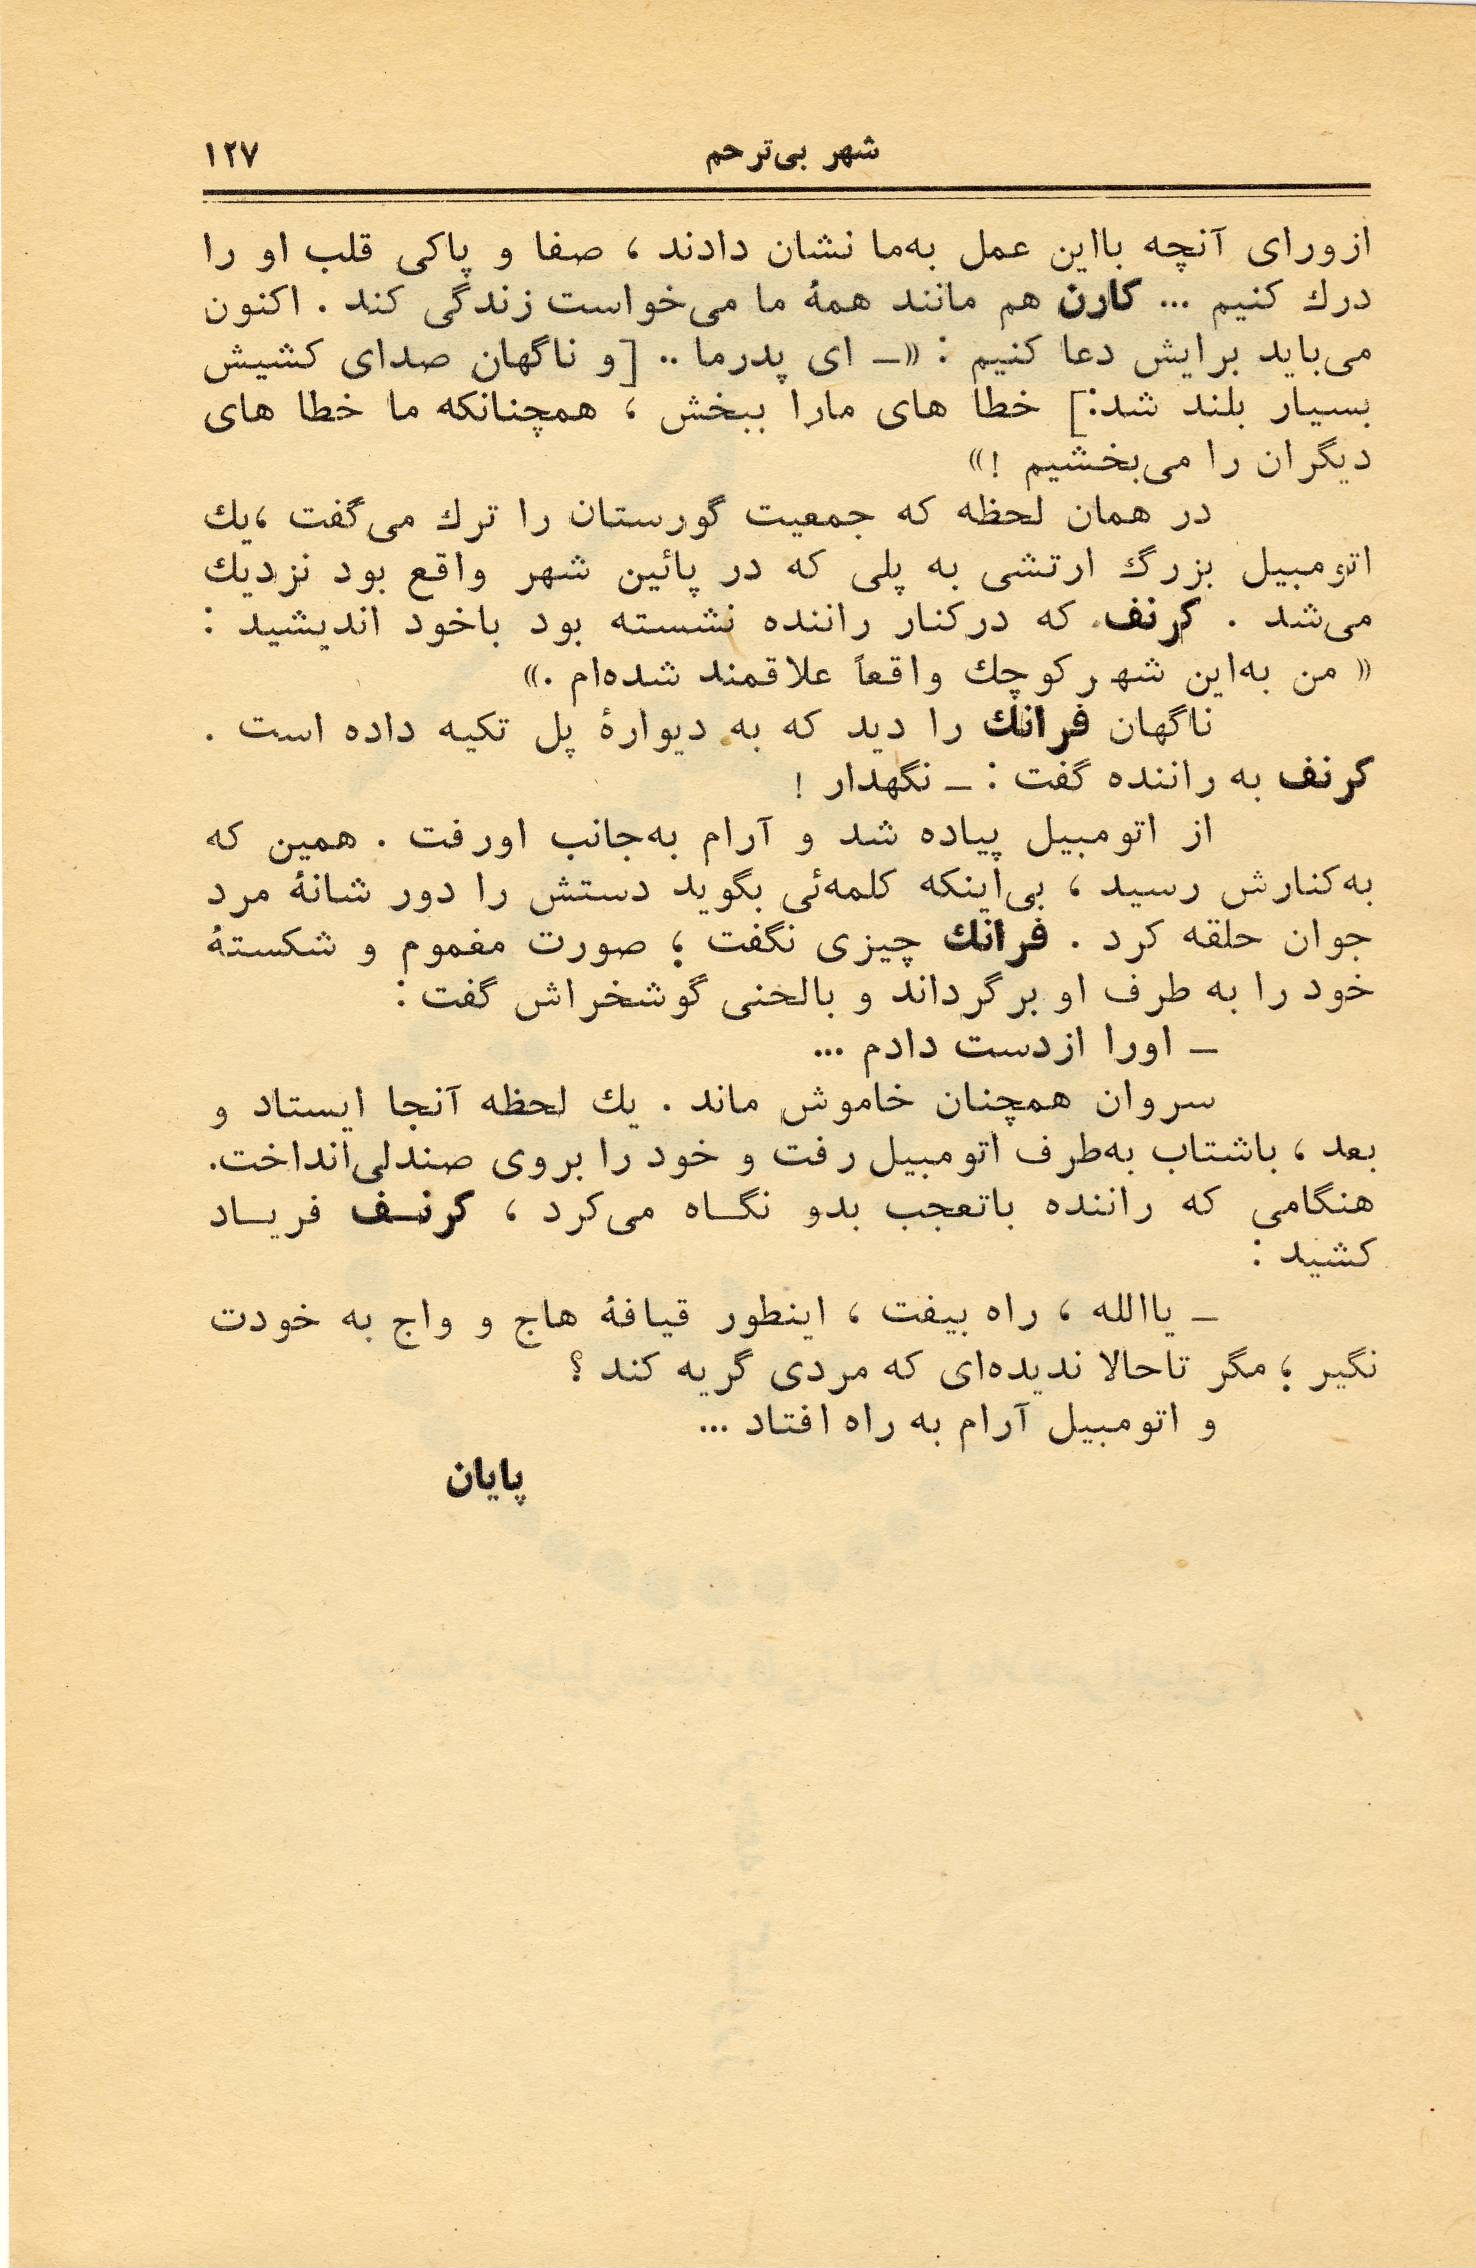 شهر بی‌ترحم
۱۲۷
ازورای آنچه بااین عمل به‌ما نشان دادند ، صفا و پاکی قلب او را
درك کنیم ... کارن هم مانند همهٔ ما می‌خواست زندگی کند . اکنون
می‌باید برایش دعا کنیم : «ــ ای پدرما .. [و ناگهان صدای کشیش
بسیار بلند شد:] خطا های مارا ببخش ، همچنانکه ما خطا های
دیگران را می‌بخشیم !»
در همان لحظه که جمعیت گورستان را ترك می‌گفت ،یك
اتومبیل بزرگ ارتشی به پلی که در پائین شهر واقع بود نزدیك
می‌شد . کرنف که درکنار راننده نشسته بود باخود اندیشید :
« من به‌این شهر کوچك واقعاً علاقمند شده‌ام .»
ناگهان فرانك را دید که به دیوارهٔ پل تکیه داده است .
کرنف به راننده گفت : ــ نگهدار !
از اتومبیل پیاده شد و آرام به‌جانب اورفت . همین که
به‌کنارش رسید ، بی‌اینکه کلمه‌ئی بگوید دستش را دور شانهٔ مرد
جوان حلقه کرد . فرانك چیزی نگفت ؛ صورت مغموم و شکستهٔ
خود را به طرف او برگرداند و بالحنی گوشخراش گفت :
ــ اورا ازدست دادم ...
سروان همچنان خاموش ماند . یك لحظه آنجا ایستاد و
بعد ، باشتاب به‌طرف اتومبیل رفت و خود را بروی صندلی‌انداخت.
هنگامی که راننده باتعجب بدو نگــاه می‌کرد ، کرنــف فریــاد
کشید :
ــ یاالله ، راه بیفت ، اینطور قیافهٔ هاج و واج به خودت
نگیر ؛ مگر تاحالا ندیده‌ای که مردی گریه کند ؟
و اتومبیل آرام به راه افتاد ...
پایان